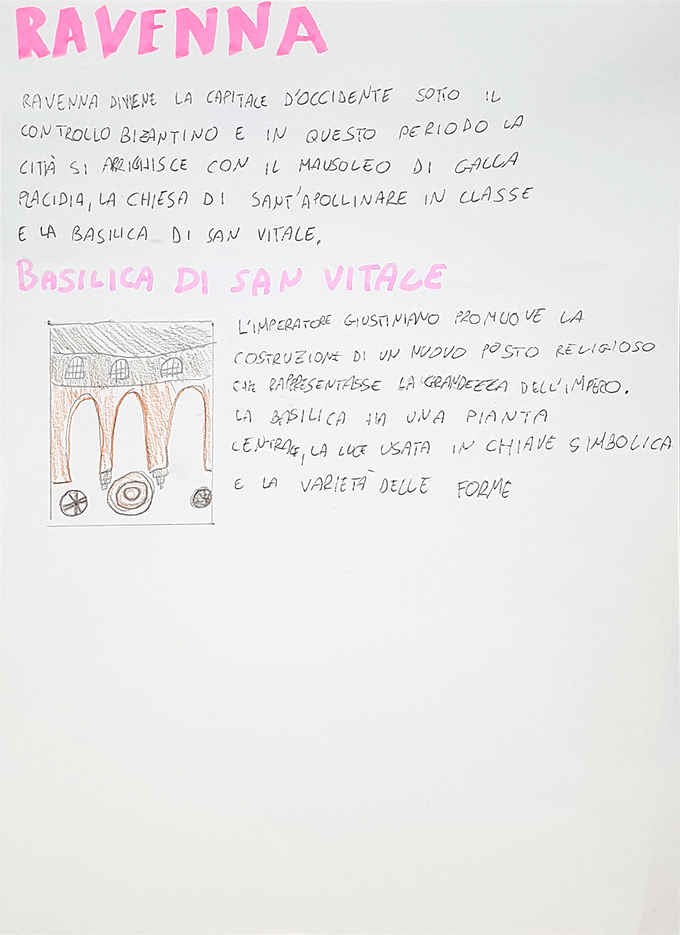 RAVENNA
RAVENNA DIVIENE LA CAPITALE D'OCCIDENTE SOTTO IL
CONTROLLO BIZANTINO E IN QUESTO PERIODO LA
CITTÀ SI ARRICHISCE CON IL MAUSOLEO DI GALLA
PLACIDIA, LA CHIESA DI SANT'APOLLINARE IN CLASSE
E LA BASILICA DI SAN VITALE.
BASILICA DI SAN VITALE
L'IMPERATORE GIUSTINIANO PROMUOVE LA
COSTRUZIONE DI UN NUOVO POSTO RELIGIOSO
CHE RAPPRESENTASSE LA GRANDEZZA DELL'IMPERO.
LA BASILICA HA UNA PIANTA
CENTRALE, LA LUCE USATA IN CHIAVE SIMBOLICA
E LA VARIETÀ DELLE FORME